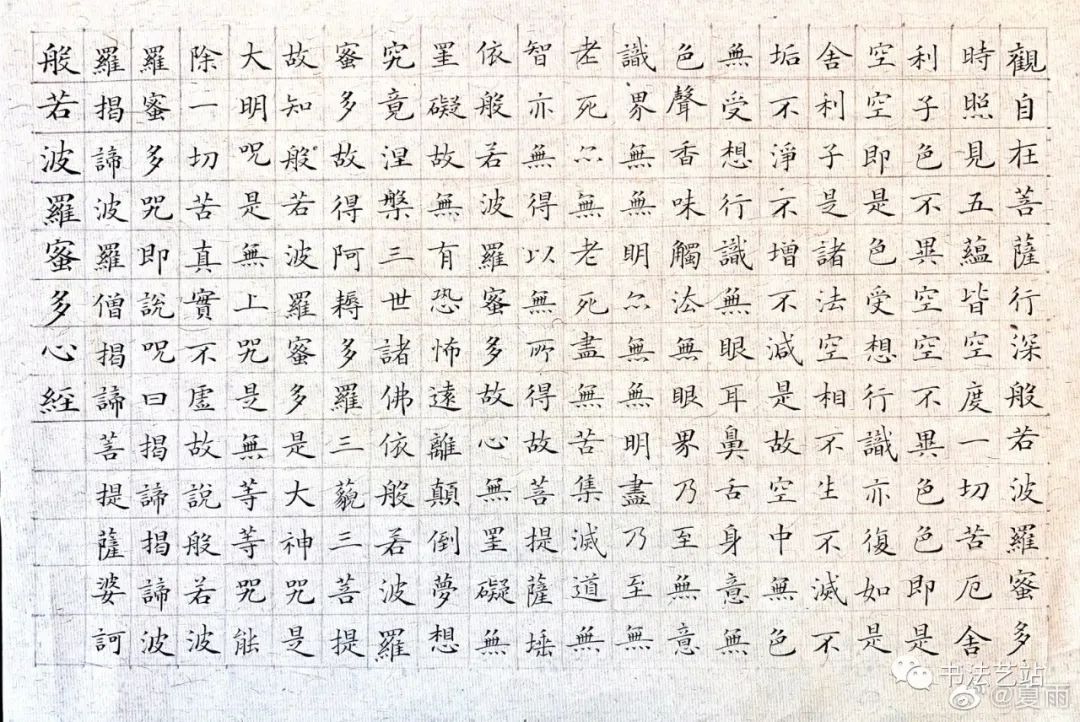 觀自在菩薩行深般若波羅蜜多
時照見五蘊皆空度一切苦厄舍
利子色不異空空不異色色即是
空空即是色受想行識亦復如是
舍利子是諸法空相不生不滅不
垢不淨不增不減是故空中無色
無受想行識無眼耳鼻舌身意無
色聲香味觸法無眼界乃至無意
識界無無明亦無無明盡乃至無
老死亦無老死盡無苦集滅道無
智亦無得以無所得故菩提薩埵
依般若波羅蜜多故心無罣礙無
罣礙故無有恐怖遠離顛倒夢想
究竟涅槃三世諸佛依般若波羅
蜜多故得阿耨多羅三藐三菩提
故知般若波羅蜜多是大神咒是
大明咒是無上咒是無等等咒能
除一切苦真實不虛故說般若波
羅蜜多咒即說咒曰揭諦揭諦波
羅揭諦波羅僧揭諦菩提薩婆訶
般若波羅蜜多心經
书法艺站
@夏雨